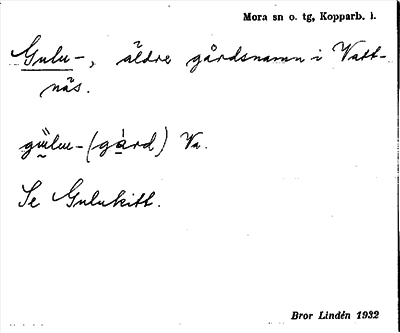 Mora sn o. tg, Kopparb. l.
Gulu-, äldre gårdsnamn i Vatt-
näs.
gulu-(gård) Va.
Se Gulukitt.
Bror Lindén 1932